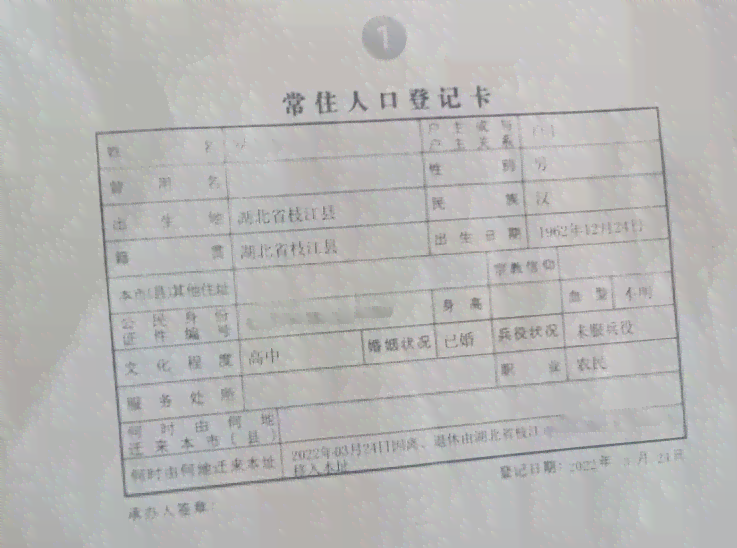 1
常住人口登记卡
姓名 户主或与户主关系
曾用名 性别 男
出生地 湖北省枝江县 民族 汉
籍贯 湖北省枝江县 出生日期 1962年12月24日
本市(县)其他住址 宗教信仰
公民身份证件编号 身高 血型 不明
文化程度 高中 婚姻状况 已婚 兵役状况 未服兵役
服务处所 职业 农民
何时由何地迁来本市(县)
何时由何地迁来本址 2022年03月24日因离、退休由湖北省枝江
移入本址
登记日期:2022年 3月 24日
承办人签章: